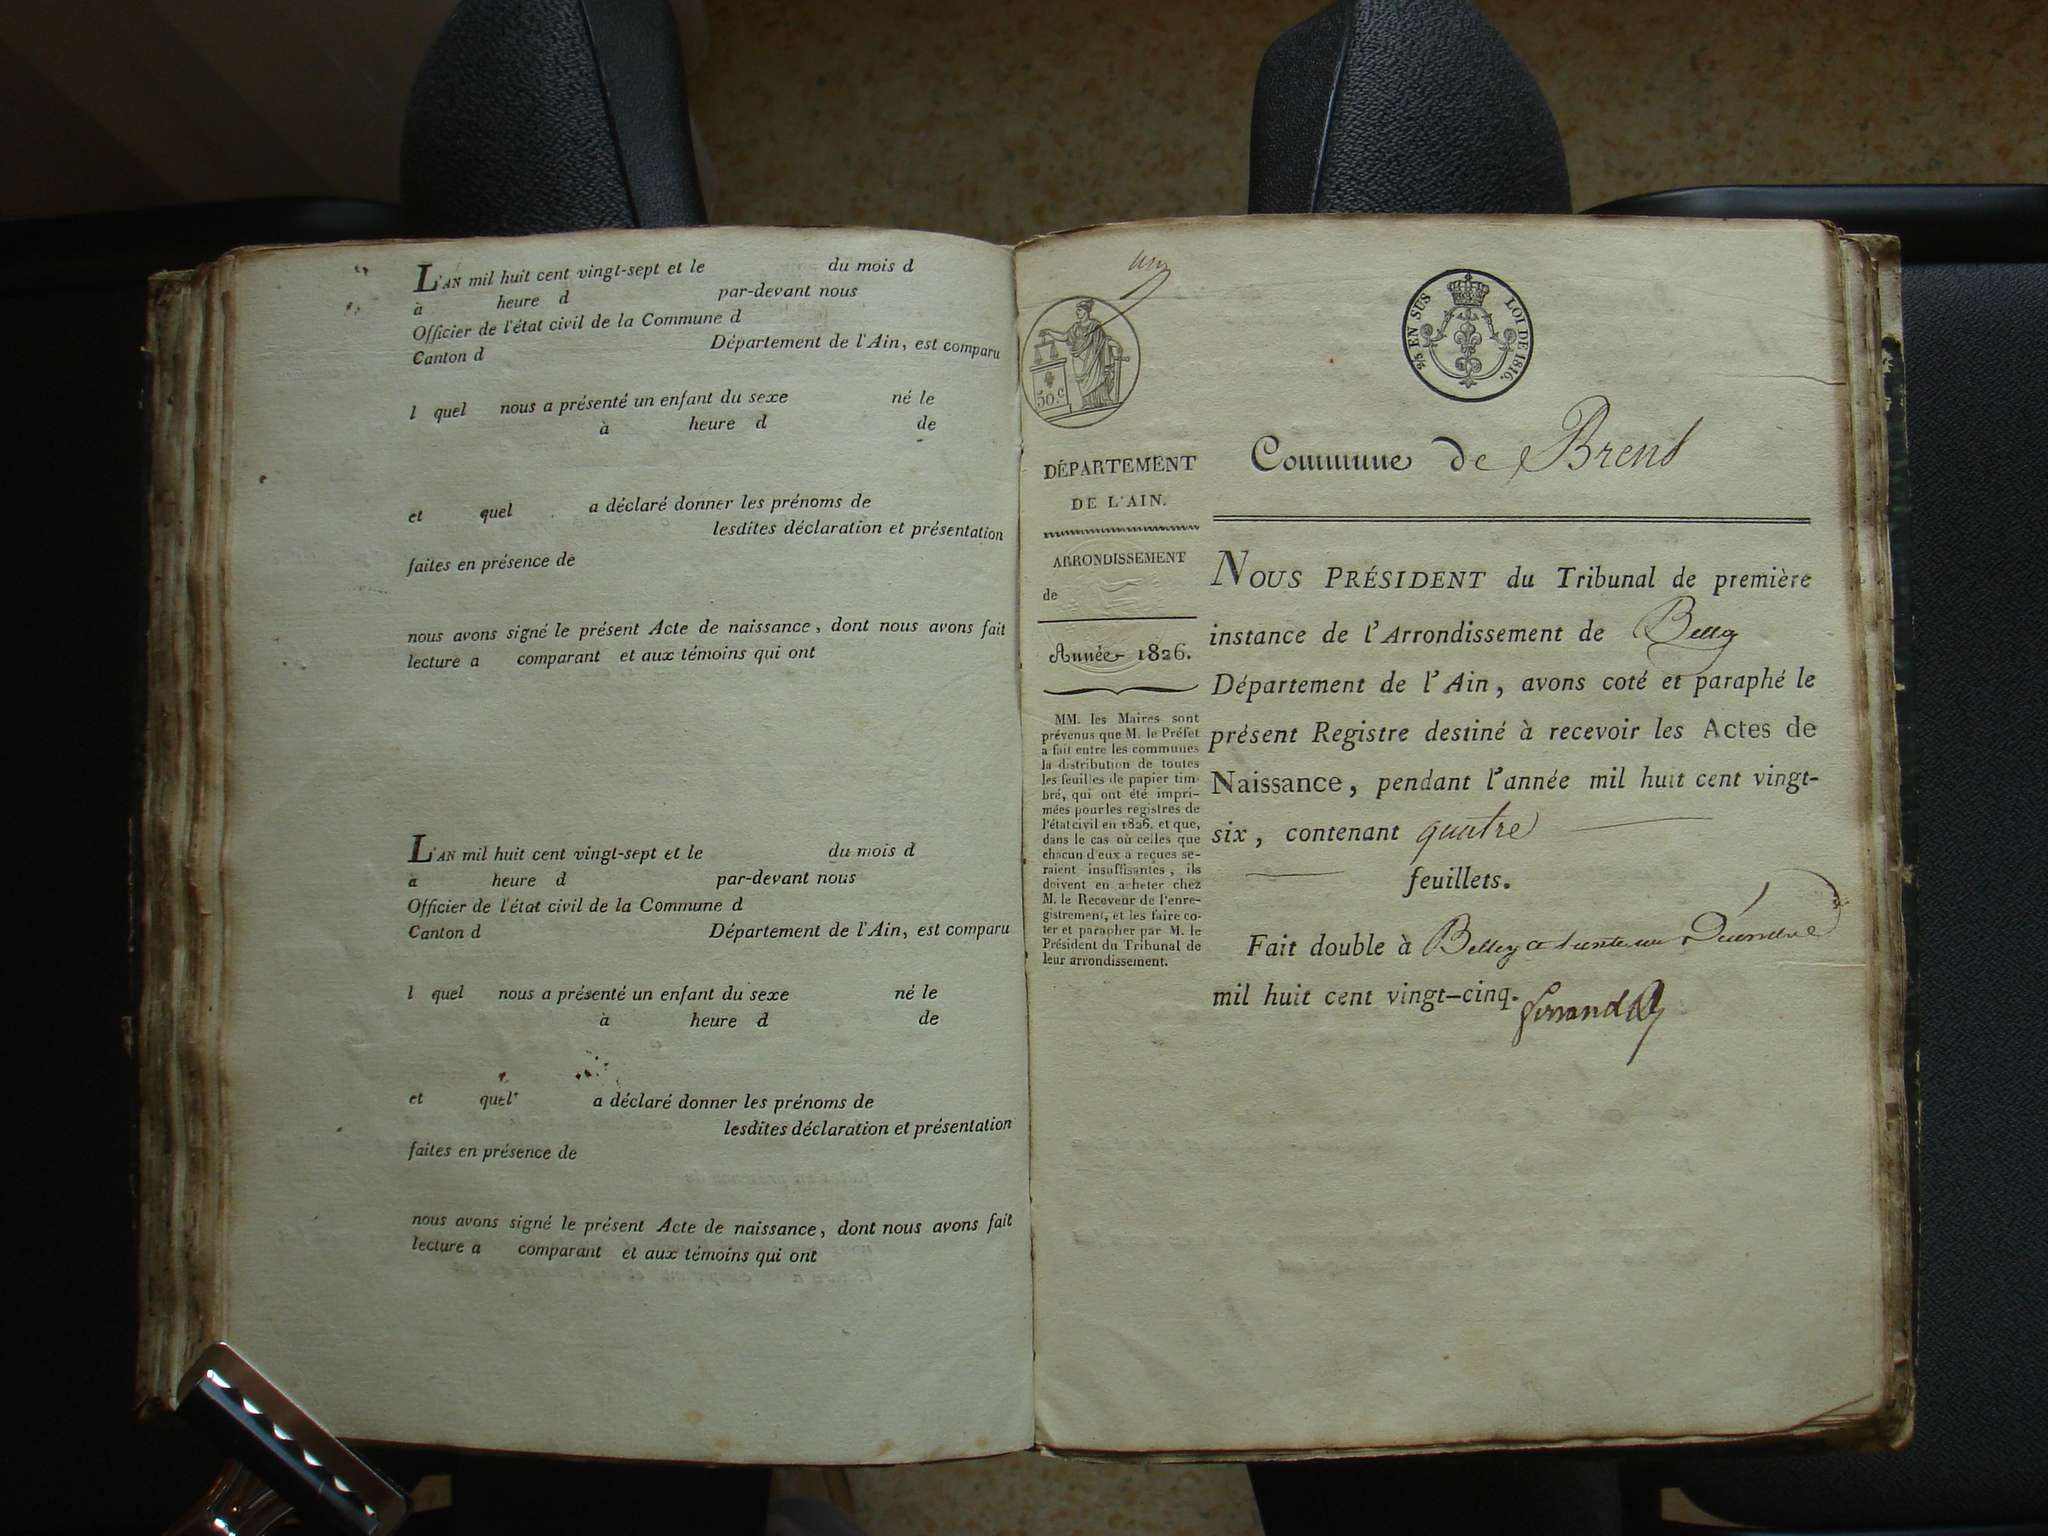 L'AN mil huit cent vingt-sept et le du mois d
à heure d par-devant nous
Officier de l'état civil de la Commune d
Canton d Département de l'Ain, est comparu
l quel nous a présenté un enfant du sexe né le
à heure d de
et quel a déclaré donner les prénoms de
lesdites déclaration et présentation
faites en présence de
nous avons signé le présent Acte de naissance, dont nous avons fait
lecture a comparant et aux témoins qui ont
L'AN mil huit cent vingt-sept et le du mois d
à heure d par-devant nous
Officier de l'état civil de la Commune d
Canton d Département de l'Ain, est comparu
l quel nous a présenté un enfant du sexe né le
à heure d de
et quel a déclaré donner les prénoms de
lesdites déclaration et présentation
faites en présence de
nous avons signé le présent Acte de naissance, dont nous avons fait
lecture a comparant et aux témoins qui ont
50.c
DÉPARTEMENT
DE L'AIN.
ARRONDISSEMENT
de
Année 1826.
MM. les Maires sont
prévenus que M. le Préfet
a fait entre les communes
la distribution de toutes
les feuilles de papier tim-
bré, qui ont été impri-
mées pour les registres de
l'état civil en 1826, et que,
dans le cas où celles que
chacun d'eux a reçues se-
raient insuffisantes, ils
doivent en acheter chez
M. le Receveur de l'enre-
gistrement, et les faire co-
ter et parapher par M. le
Président du Tribunal de
leur arrondissement.
EN SUS LOI DE 1816.
Commune de Brens
NOUS PRÉSIDENT du Tribunal de première
instance de l'Arrondissement de Belley
Département de l'Ain, avons coté et paraphé le
présent Registre destiné à recevoir les Actes de
Naissance, pendant l'année mil huit cent vingt-
six, contenant quatre
feuillets.
Fait double à Belley ce trente un Décembre
mil huit cent vingt-cinq.